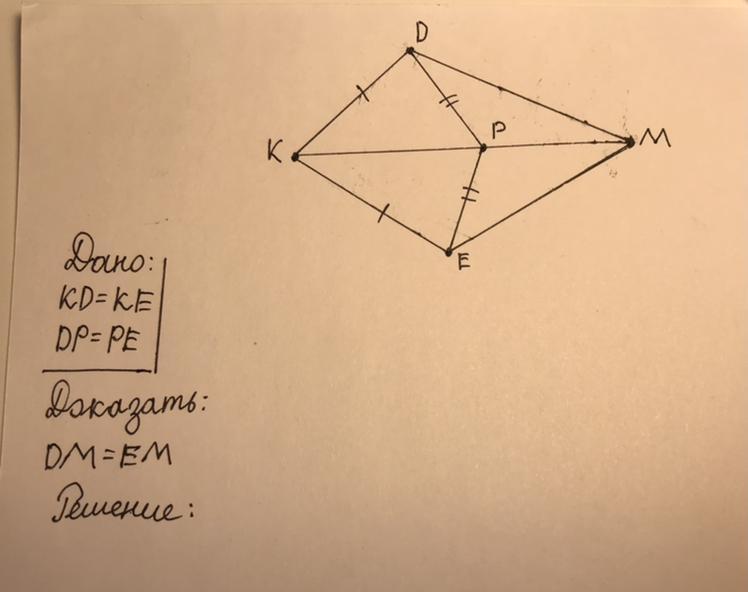 D
P
M
K
E
Дано:
KD=KE
DP=PE
Доказать:
DM=EM
Решение: